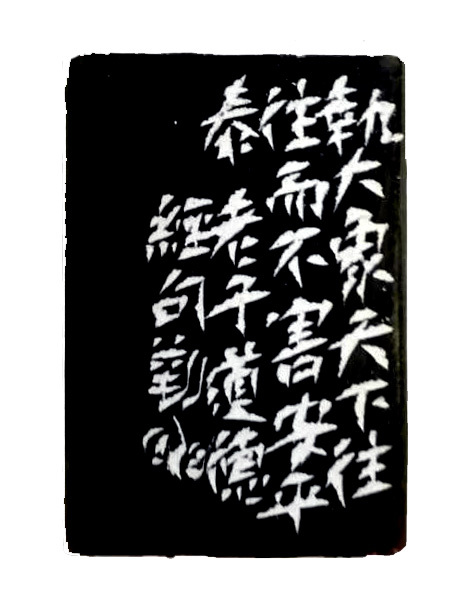 執大象天下往
往而不害安平
泰 老子道德
經句劉